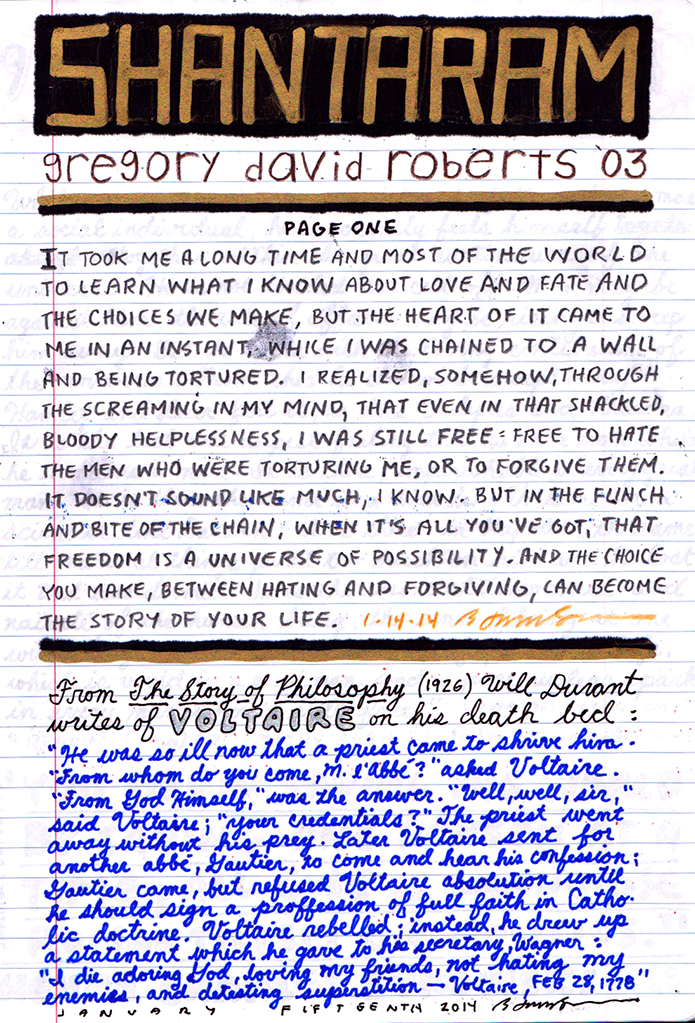 SHANTARAM
gregory david roberts '03
PAGE ONE
IT TOOK ME A LONG TIME AND MOST OF THE WORLD
TO LEARN WHAT I KNOW ABOUT LOVE AND FATE AND
THE CHOICES WE MAKE, BUT THE HEART OF IT CAME TO
ME IN AN INSTANT, WHILE I WAS CHAINED TO A WALL
AND BEING TORTURED. I REALIZED, SOMEHOW, THROUGH
THE SCREAMING IN MY MIND, THAT EVEN IN THAT SHACKLED,
BLOODY HELPLESSNESS, I WAS STILL FREE: FREE TO HATE
THE MEN WHO WERE TORTURING ME, OR TO FORGIVE THEM.
IT DOESN'T SOUND LIKE MUCH, I KNOW. BUT IN THE FLINCH
AND BITE OF THE CHAIN, WHEN IT'S ALL YOU'VE GOT, THAT
FREEDOM IS A UNIVERSE OF POSSIBILITY. AND THE CHOICE
YOU MAKE, BETWEEN HATING AND FORGIVING, CAN BECOME
THE STORY OF YOUR LIFE. 1-14-14
From The Story of Philosophy (1926) Will Durant
writes of VOLTAIRE on his death bed:
"He was so ill now that a priest came to shrive him.
"From whom do you come, M. l'Abbé?" asked Voltaire.
"From God Himself," was the answer. "Well, well, sir,"
said Voltaire; "your credentials?" The priest went
away without his prey. Later Voltaire sent for
another abbé, Gautier, to come and hear his confession;
Gautier came, but refused Voltaire absolution until
he should sign a proffession of full faith in Catho-
lic doctrine. Voltaire rebelled; instead, he drew up
a statement which he gave to his secretary, Wagner:
"I die adoring God, loving my friends, not hating my
enemies, and detesting superstition — Voltaire, FEB 28, 1778"
JANUARY FIFTGENTH 2014